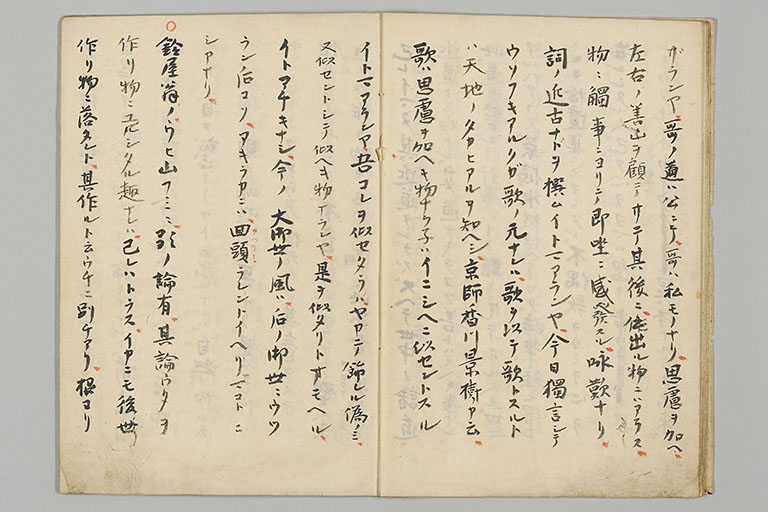 ガランヤ哥ノ道ハ公ニテ哥ハ私モナリ思慮ヲ加ヘ
左右ノ善悪ヲ顧テサテ其後ニ使出ル物ニハアラス
物ニ觸事ニヨリテ即坐ニ感發スル咏歎ナリ
詞ノ近古ナトヲ撰ムイトマアランヤ今日獨言シテ
ウソフキアルクガ歌ノ元ナレハ歌ヲ以テ歌トスルト
ハ天地ノタカヒアルヲ知ヘシ京師香川景樹カ云
歌ハ思慮ヲ加ヘキ物ナラ子ハイニシヘニ似セントスル
イトマアランヤ吾コレヲ似セタラハヤカテ飾レル偽ノミ
又似セントシテ似ヘキ物ナランヤ是ヲ似タリトオモヘル
イトアチキナシ今ノ大御世ノ風ハ后ノ御世ニウツ
ランノ后コソアキラカニハ回頭ラレントイヘリマコトニ
シカナリ
○鈴屋翁ノウヒ山フミニ歌ノ論有其論ウタヲ
作リ物ニ見シタル趣ナレハ己レハトラスイカニモ後世
作リ物ニ落タレト其作ルト云ウチニ別チアリ根ヨリ